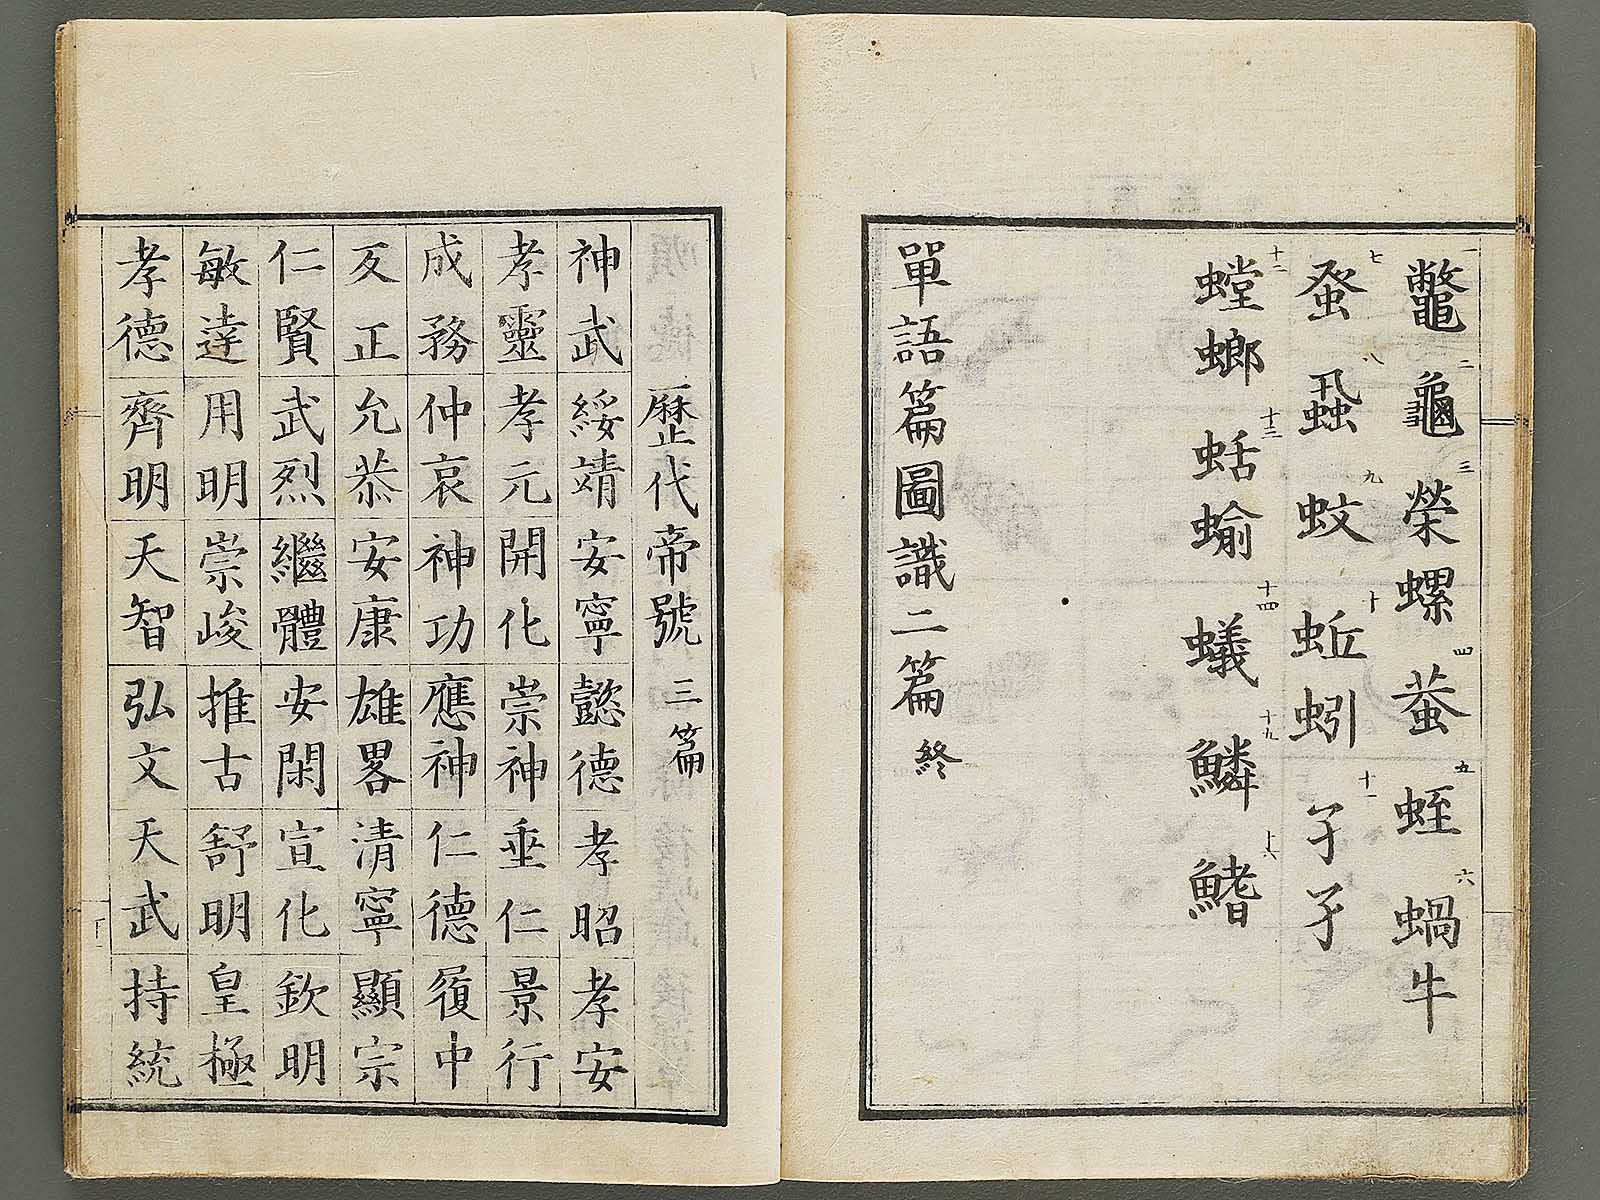 一鼈二龜三榮螺四蚕五蛭六蝸牛
七蚤八蝨九蚊十蚯蚓十一孑孑
十二螳螂十三蛞蝓十四蟻十九鱗十六鰭
單語篇圖識二篇終
歷代帝號 三篇
神武 綏靖 安寧 懿德 孝昭 孝安
孝靈 孝元 開化 崇神 垂仁 景行
成務 仲哀 神功 應神 仁德 履中
反正 允恭 安康 雄畧 清寧 顯宗
仁賢 武烈 繼體 安閑 宣化 欽明
敏達 用明 崇峻 推古 舒明 皇極
孝德 齊明 天智 弘文 天武 持統